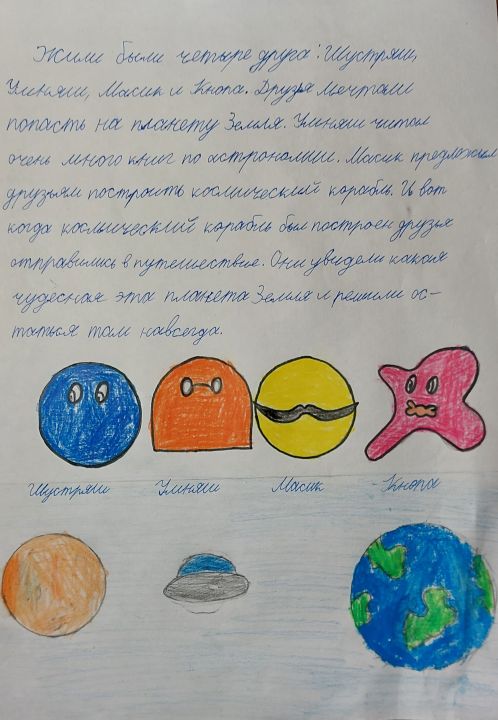 Жили были четыре друга: Шустряш,
Умняш, Масик и Кнопа. Друзья мечтали
попасть на планету Земля. Умняш читал
очень много книг по астрономии. Масик предложил
друзьям построить космический корабль. И вот
когда космический корабль был построен друзья
отправились в путешествие. Они увидели какая
чудесная эта планета Земля и решили ос-
таться там навсегда.
Шустряш Умняш Масик Кнопа